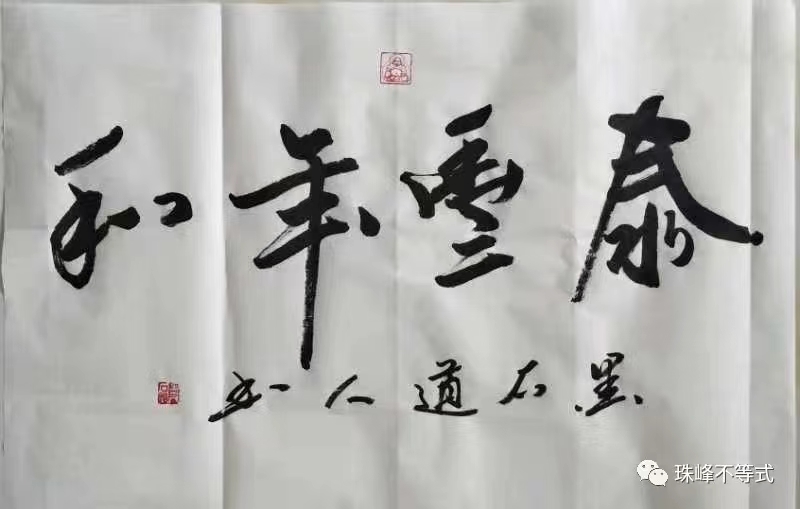 泰豐年和
黑石道人书
珠峰不等式